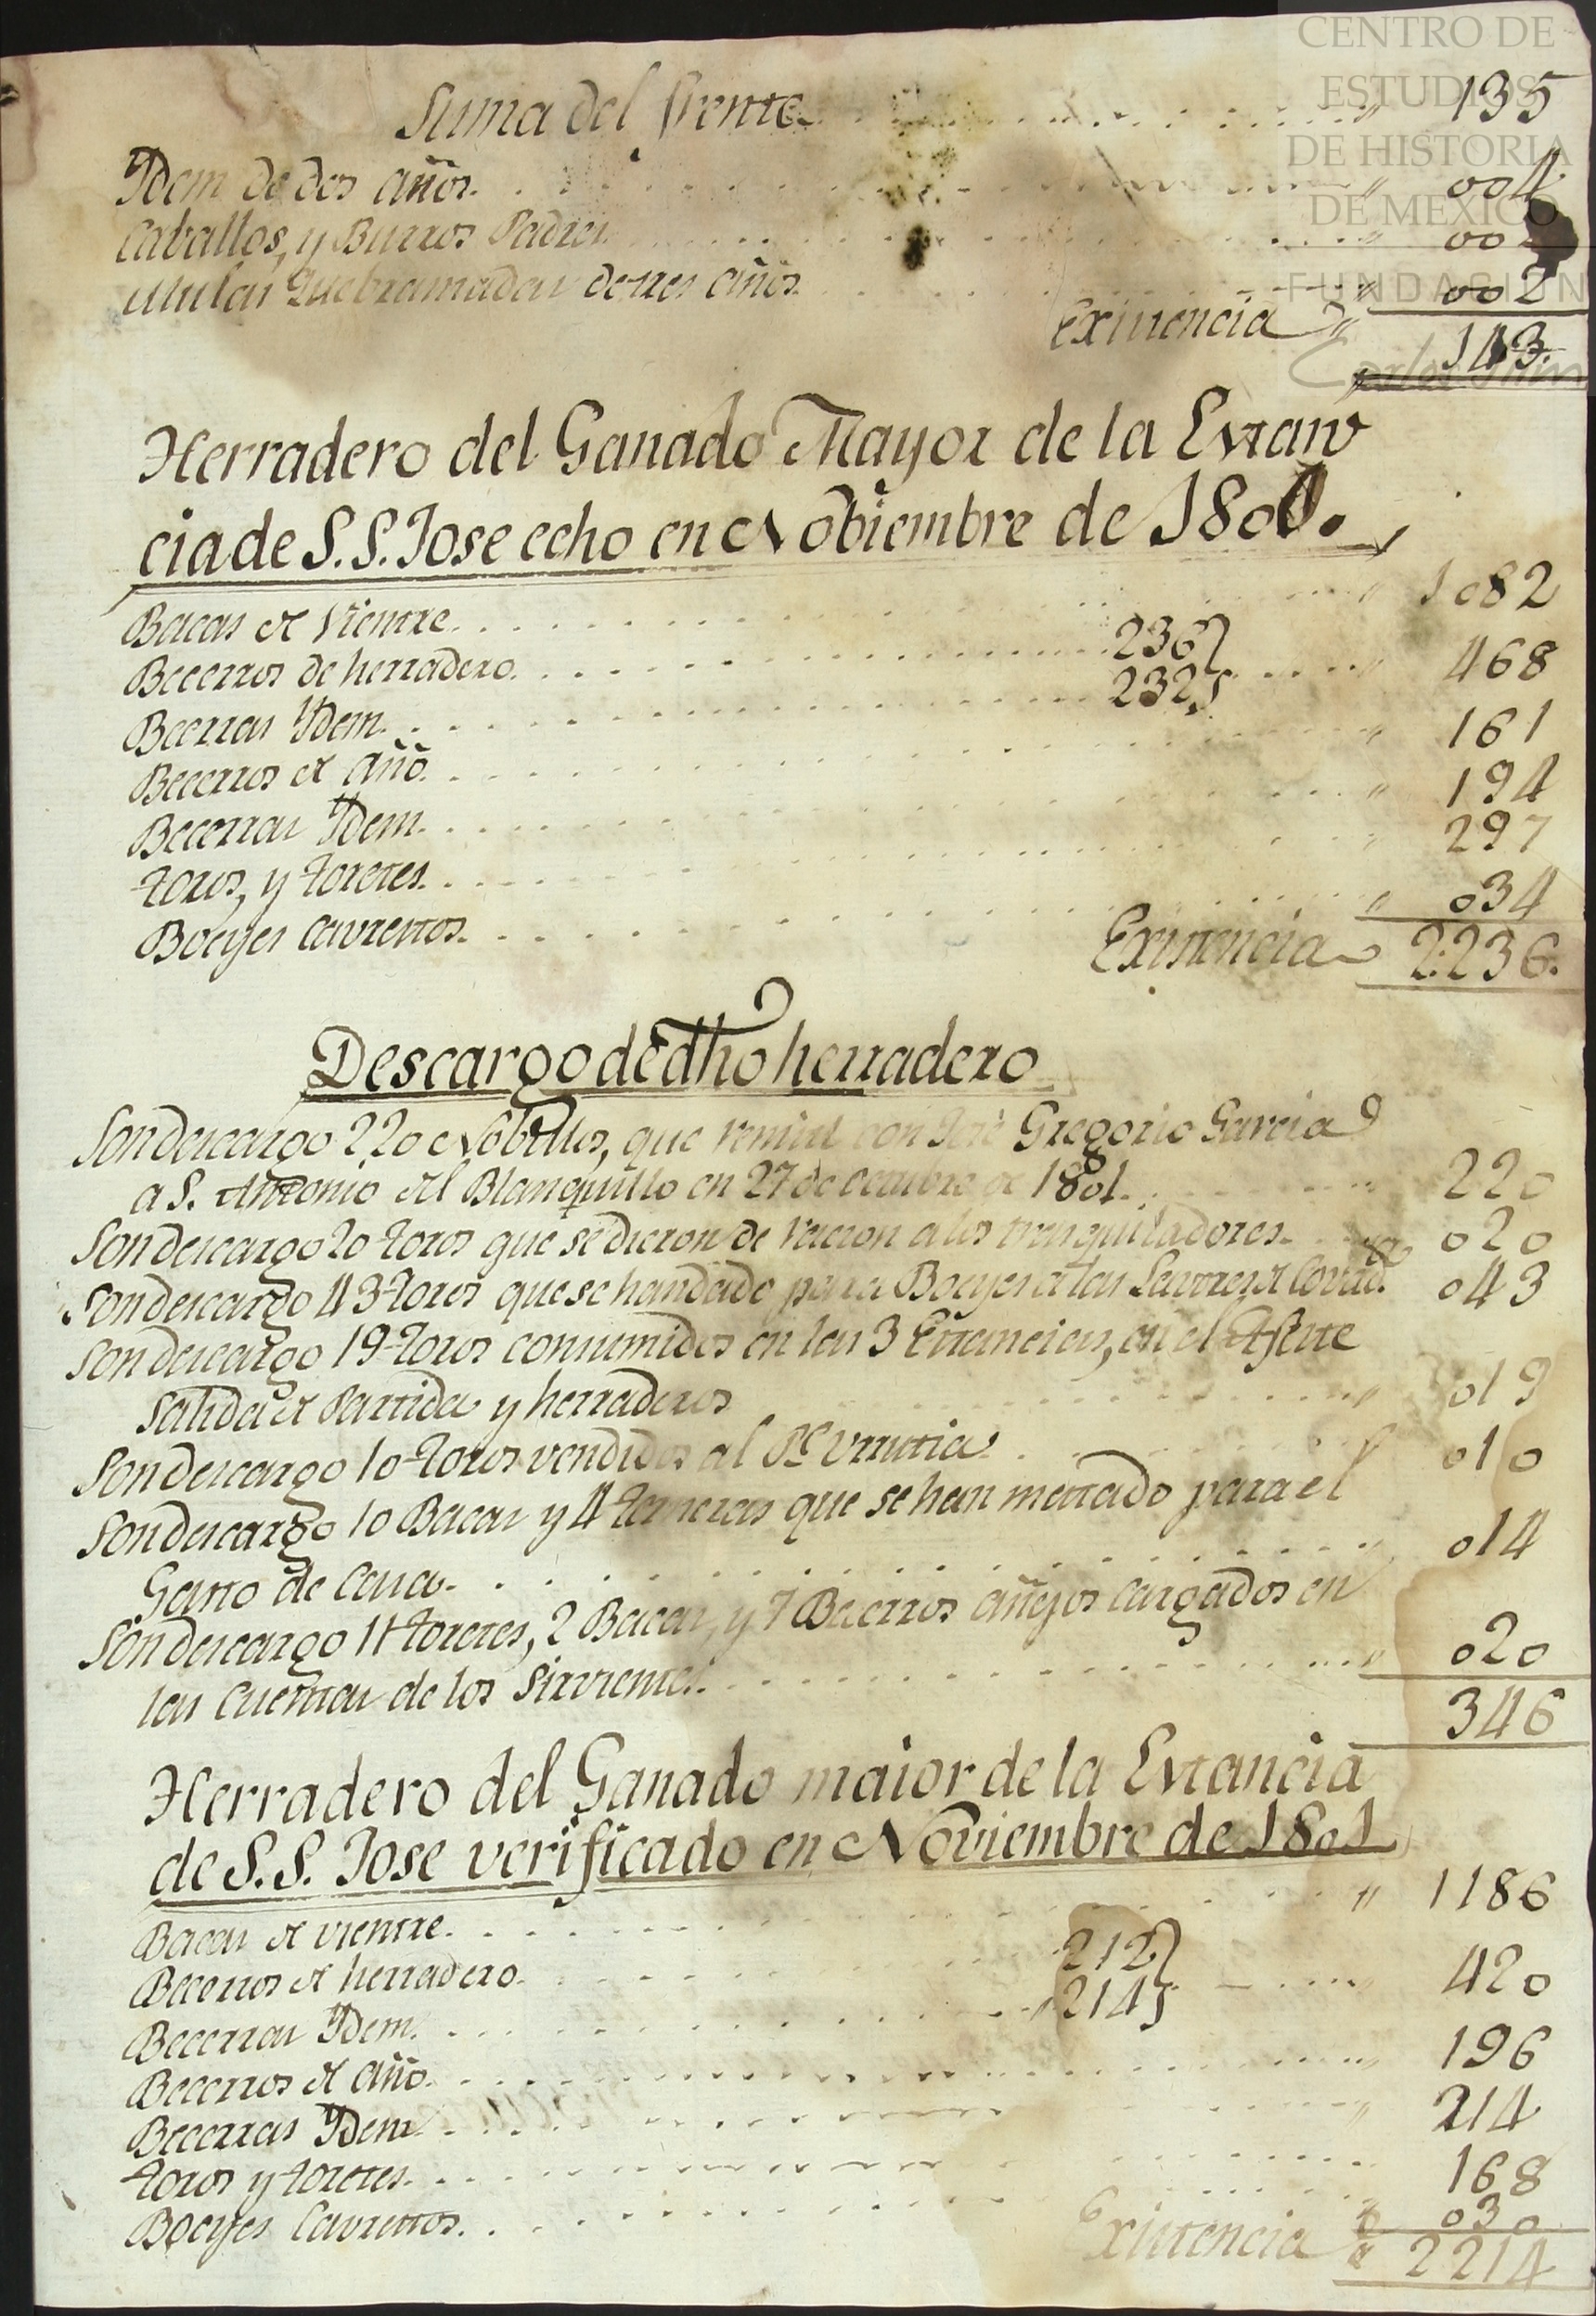 CENTRO DE
ESTUDIOS
DE HISTORIA
DE MEXICO
FUNDACION
Suma del frente 135
Ydem de dos años. 004
Caballos, y Burros Padres 002
Mulas Quebramadas de tres años. 002
Existencia 143.
Herradero del Ganado Mayor de la Estan
cia de S.S. Jose echo en Nobiembre de 1800.
Bacas de Vientre. 1082
Becerros de herradero. 236 } 468
Becerras Ydem. 232
Becerros de año. 161
Becerras Ydem. 194
toros, y toretes. 297
Boeyes Cavrestos. 034
Existencia 2.236.
Descargo de dho herradero
Son descargo 220 Nobillos, que remití con Jose Gregorio Garcia
a S. Antonio del Blanquillo en 27 de octubre de 1801. 220
Son descargo 20 toros que se dieron de racion a los trasquiladores. 020
Son descargo 43 toros que se han dado para Boeyes a las 043
Son descargo 19 toros consumidos en las 3 Estancias, en el Ajuste
Salida de Partida y herraderos 019
Son descargo 10 toros vendidos al Sr. Urrutia. 010
Son descargo 10 Bacas y 4 terneras que se han mattado para el
Gasto de Casa. 014
Son descargo 11 toretes, 2 Bacas, y 7 Becerros añejos cargados en
las Cuentas de los Sirvientes. 020
346
Herradero del Ganado maior de la Estancia
de S.S. Jose verificado en Noviembre de 1801
Bacas de vientre. 1186
Becerros de herradero. 212 } 420
Becerras Ydem. 214
Becerros de año. 196
Becerras Ydem 214
toros y toretes. 168
Boeyes Cavrestos. 030
Existencia 2214